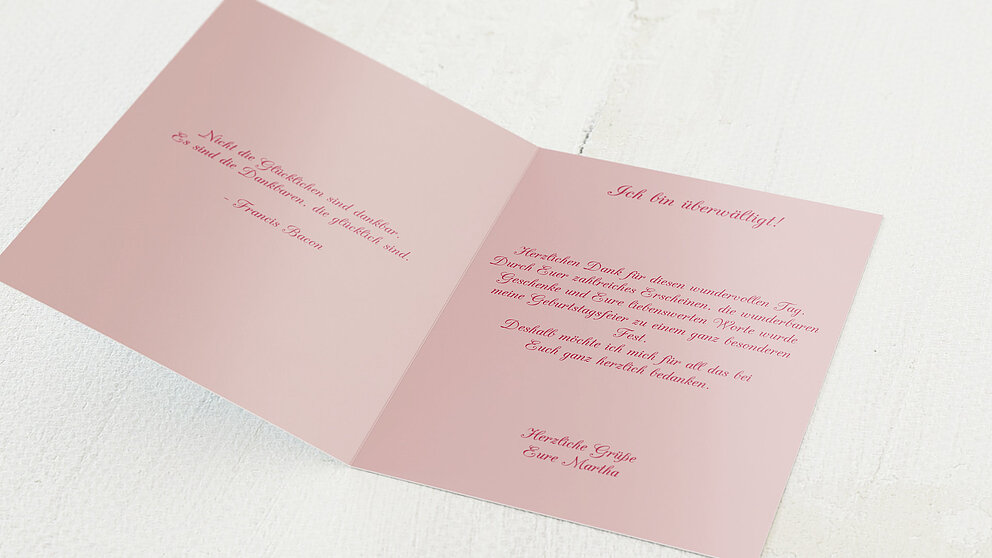 Nicht die Glücklichen sind dankbar.
Es sind die Dankbaren, die glücklich sind.
- Francis Bacon
Ich bin überwältigt!
Herzlichen Dank für diesen wundervollen Tag.
Durch Euer zahlreiches Erscheinen, die wunderbaren
Geschenke und Eure liebenswerten Worte wurde
meine Geburtstagsfeier zu einem ganz besonderen
Fest.
Deshalb möchte ich mich für all das bei
Euch ganz herzlich bedanken.
Herzliche Grüße
Eure Martha